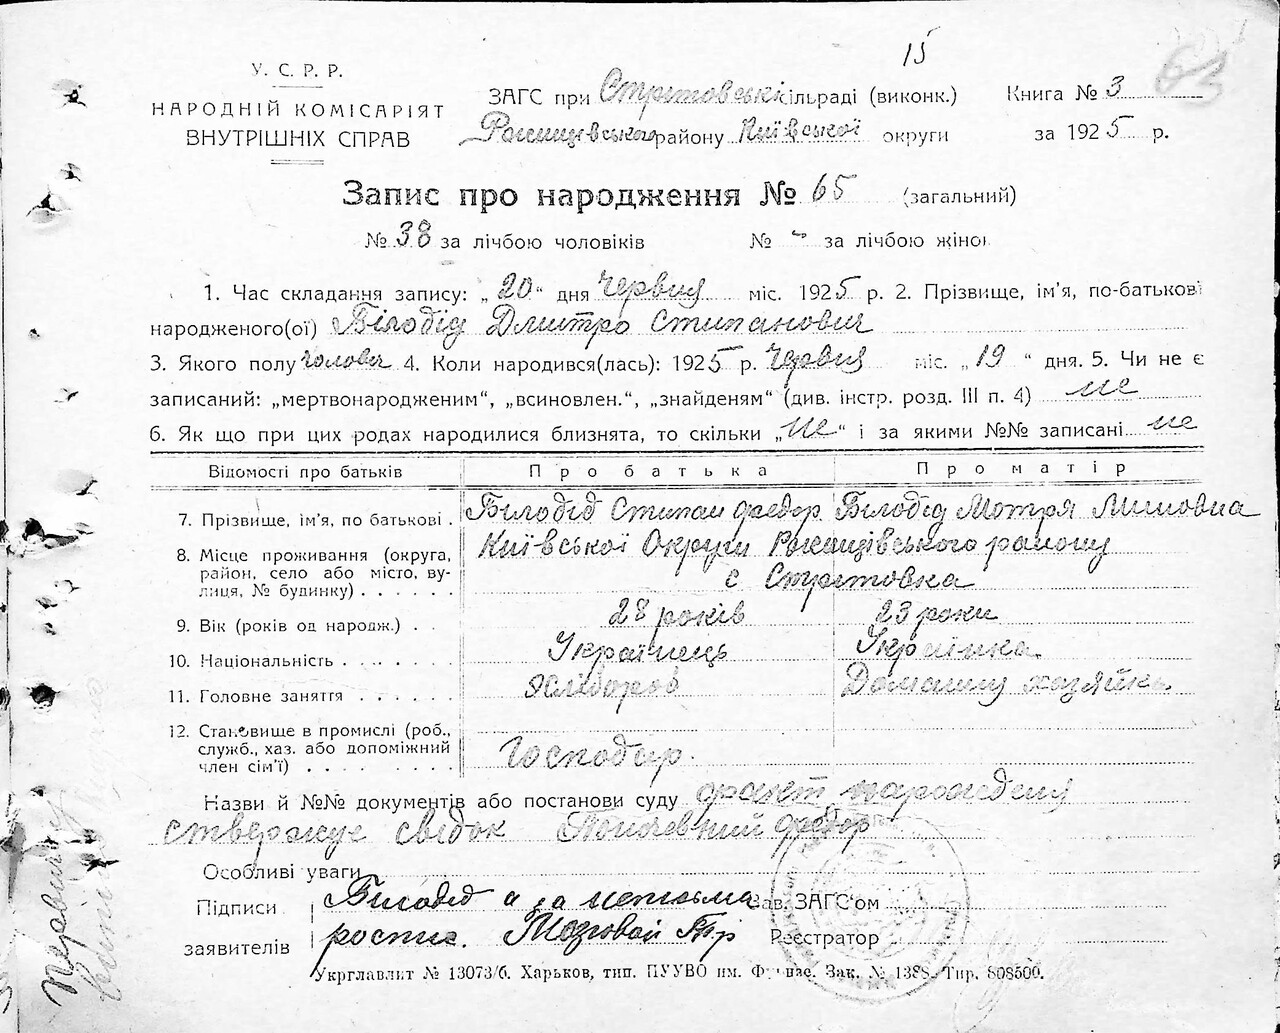 15
У. С. Р. Р.
НАРОДНІЙ КОМІСАРІЯТ
ВНУТРІШНІХ СПРАВ
ЗАГС при Стритовські сільраді (виконк.)
району Київської округи
Книга № 3
за 1925 р.
Запис про народження № 65 (загальний)
№ 38 за лічбою чоловіків № - за лічбою жінок
1. Час складання запису: „20“ дня Червня міс. 1925 р. 2. Прізвище, ім'я, по-батькові
народженого(ої) Білодід Дмитро Степанович
3. Якого полу чолович 4. Коли народився(лась): 1925 р. Червня міс. „19“ дня. 5. Чи не є
записаний: „мертвонародженим“, „всиновлен.“, „знайденям“ (див. інстр. розд. III п. 4) не
6. Як що при цих родах народилися близнята, то скільки „не“ і за якими №№ записані не
Відомості про батьків Про батька Про матір
7. Прізвище, ім'я, по батькові . Білодід Степан Федор Білодід Мотря
8. Місце проживання (округа, район, село або місто, вулиця, № будинку) . . . . . . Київської Округи району
с Стритовка
9. Вік (років од народж.) . . 28 років 23 роки
10. Національність . . . . . . Українець Українка
11. Головне заняття . . . . . . Хлібороб Домашня хазяйка
12. Становище в промислі (роб., служб., хаз. або допоміжний член сім'ї) . . . . . . . Господар.
Назви й №№ документів або постанови суду факт народження
ствержує свідок Федор
Особливі уваги
Підписи Білодід а за
заявителів роспис. Мозговой Зав. ЗАГС'ом
Реєстратор
Укрглавліт № 13073/б. Харьков, тип. ПУУВО им. Фрунзе. Зак. № 1388. Тир. 808500.